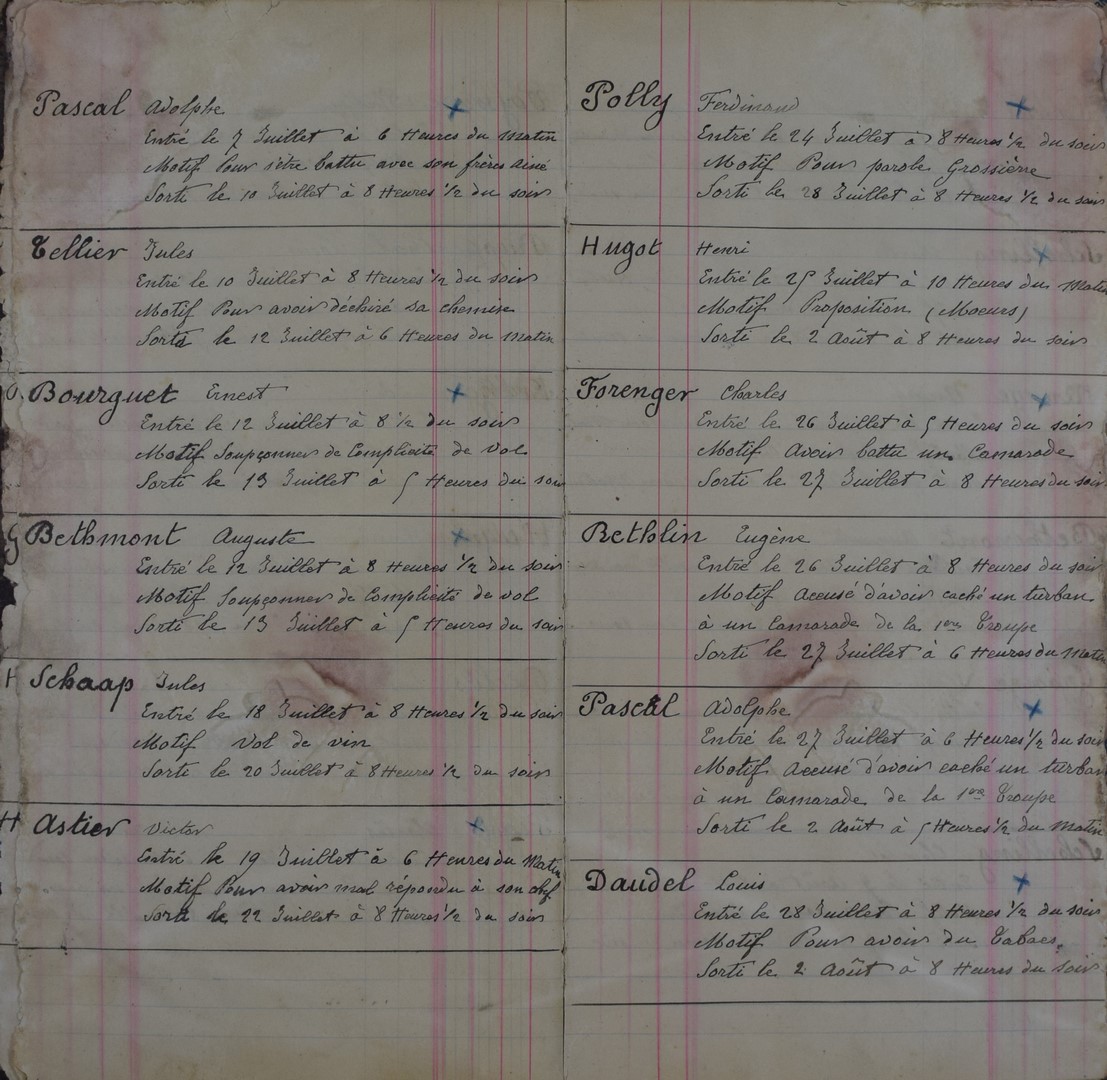 Pascal Adolphe
Entré le 7 Juillet à 6 Heures du Matin
Motif Pour s'être battu avec son frères Ainé
Sorti le 10 Juillet à 8 Heures 1/2 du soir
Tellier Jules
Entré le 10 Juillet à 8 Heures 1/2 du soir
Motif Pour avoir déchiré sa chemise
Sorti le 12 Juillet à 6 Heures du Matin
Bourguet Ernest
Entré le 12 Juillet à 8 1/2 du soir
Motif Soupçonner de Complicité de Vol
Sorti le 13 Juillet à 5 Heures du soir
Bethmont Auguste
Entré le 12 Juillet à 8 Heures 1/2 du soir
Motif Soupçonner de Complicité de vol
Sorti le 13 Juillet à 5 Heures du soir
H Schaap Jules
Entré le 18 Juillet à 8 Heures 1/2 du soir
Motif Vol de vin
Sorti le 20 Juillet à 8 Heures 1/2 du soir
H Astier Victor
Entré le 19 Juillet à 6 Heures du Matin
Motif Pour avoir mal répondu à son chef
Sorti le 22 Juillet à 8 Heures 1/2 du soir
Polly Ferdinand
Entré le 24 Juillet à 8 Heures 1/2 du soir
Motif Pour parole Grossière
Sorti le 28 Juillet à 8 Heures 1/2 du soir
Hugot Henri
Entré le 25 Juillet à 10 Heures du Matin
Motif Proposition (Moeurs)
Sorti le 2 Août à 8 Heures du soir
Forenger Charles
Entré le 26 Juillet à 5 Heures du soir
Motif Avoir battu un Camarade
Sorti le 27 Juillet à 8 Heures du soir
Rethlin Eugène
Entré le 26 Juillet à 8 Heures du soir
Motif Accusé d'avoir caché un turban
à un Camarade de la 1ère Troupe
Sorti le 27 Juillet à 6 Heures du Matin
Pascal Adolphe
Entré le 27 Juillet à 6 Heures 1/2 du soir
Motif Accusé d'avoir caché un turban
à un Camarade de la 1ère Troupe
Sorti le 2 Août à 5 Heures 1/2 du Matin
Daudel Louis
Entré le 28 Juillet à 8 Heures 1/2 du soir
Motif Pour avoir du Tabac.
Sorti le 2 Août à 8 Heures du soir